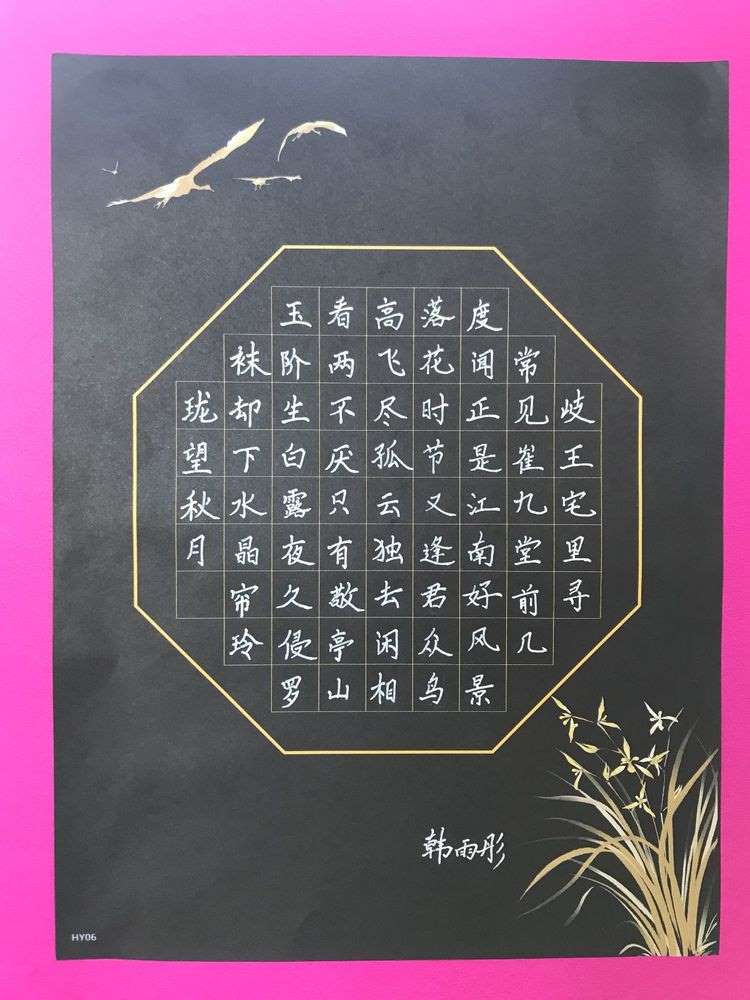 歧王宅里寻
常见崔九堂前几
度闻正是江南好风景
落花时节又逢君众鸟
高飞尽孤云独去闲相
看两不厌只有敬亭山
玉阶生白露夜久侵罗
袜却下水晶帘玲
珑望秋月
韩雨彤
HY06